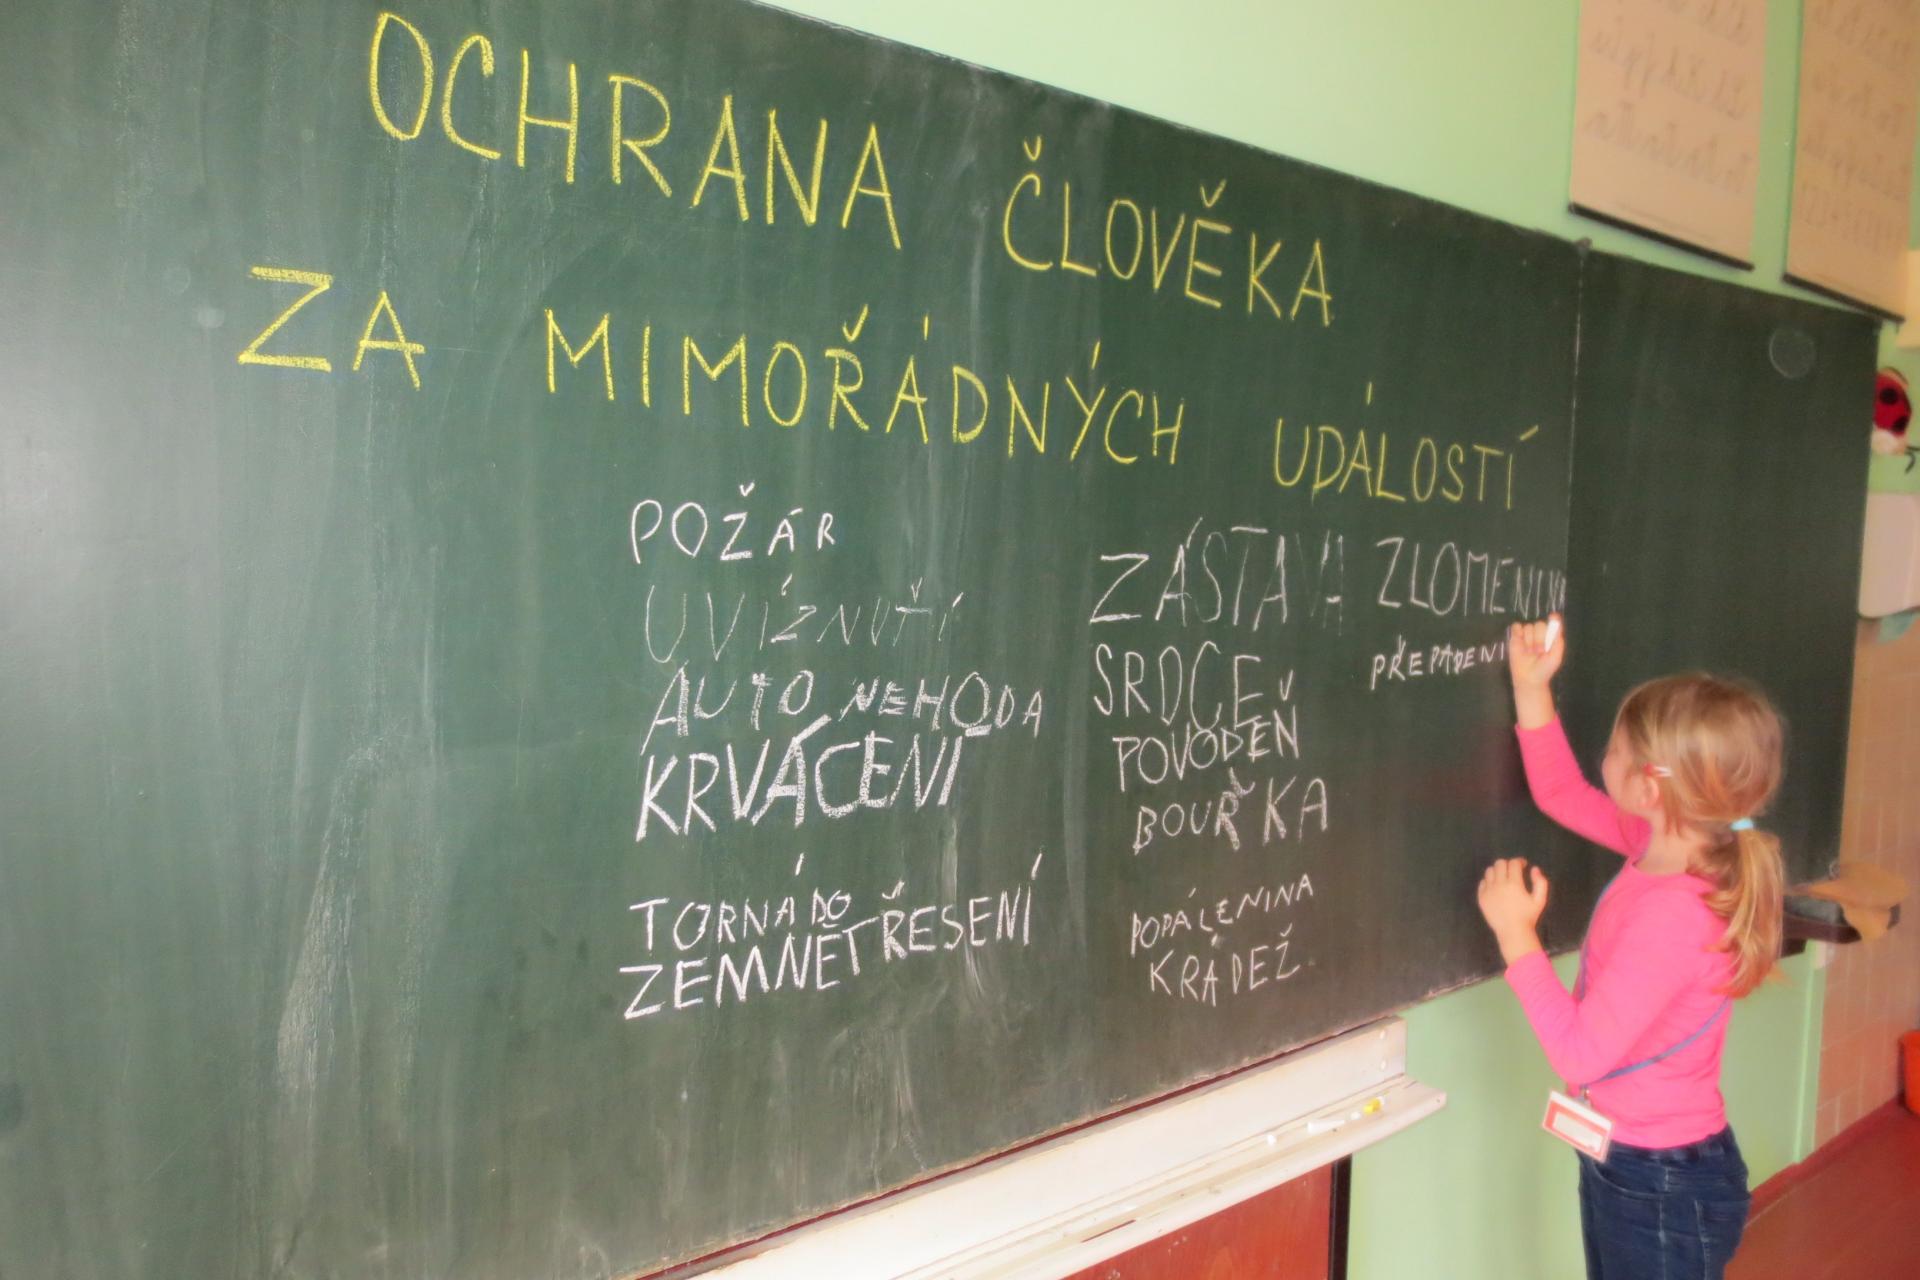 OCHRANA ČLOVĚKA
ZA MIMOŘÁDNÝCH UDÁLOSTÍ
POŽÁR
UVÍZNUTÍ
AUTO NEHODA
KRVÁCENÍ
TORNÁDO
ZEMNĚTŘESENÍ
ZÁSTAVA
SRDCE
POVODEŇ
BOUŘKA
POPÁLENINA
KRÁDEŽ
ZLOMENINA
PŘEPADENÍ